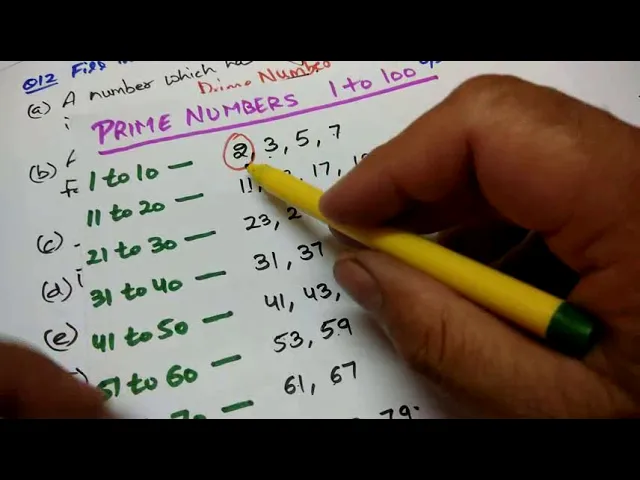 Q12 Fill
(a) A number which ha
Prime Number
PRIME NUMBERS 1 to 100
(b)
1 to 10 — 2, 3, 5, 7
11 to 20 — 11, 17,
(c)
21 to 30 — 23, 2
(d)
31 to 40 — 31, 37
(e)
41 to 50 — 41, 43,
51 to 60 — 53, 59
70 — 61, 67
79